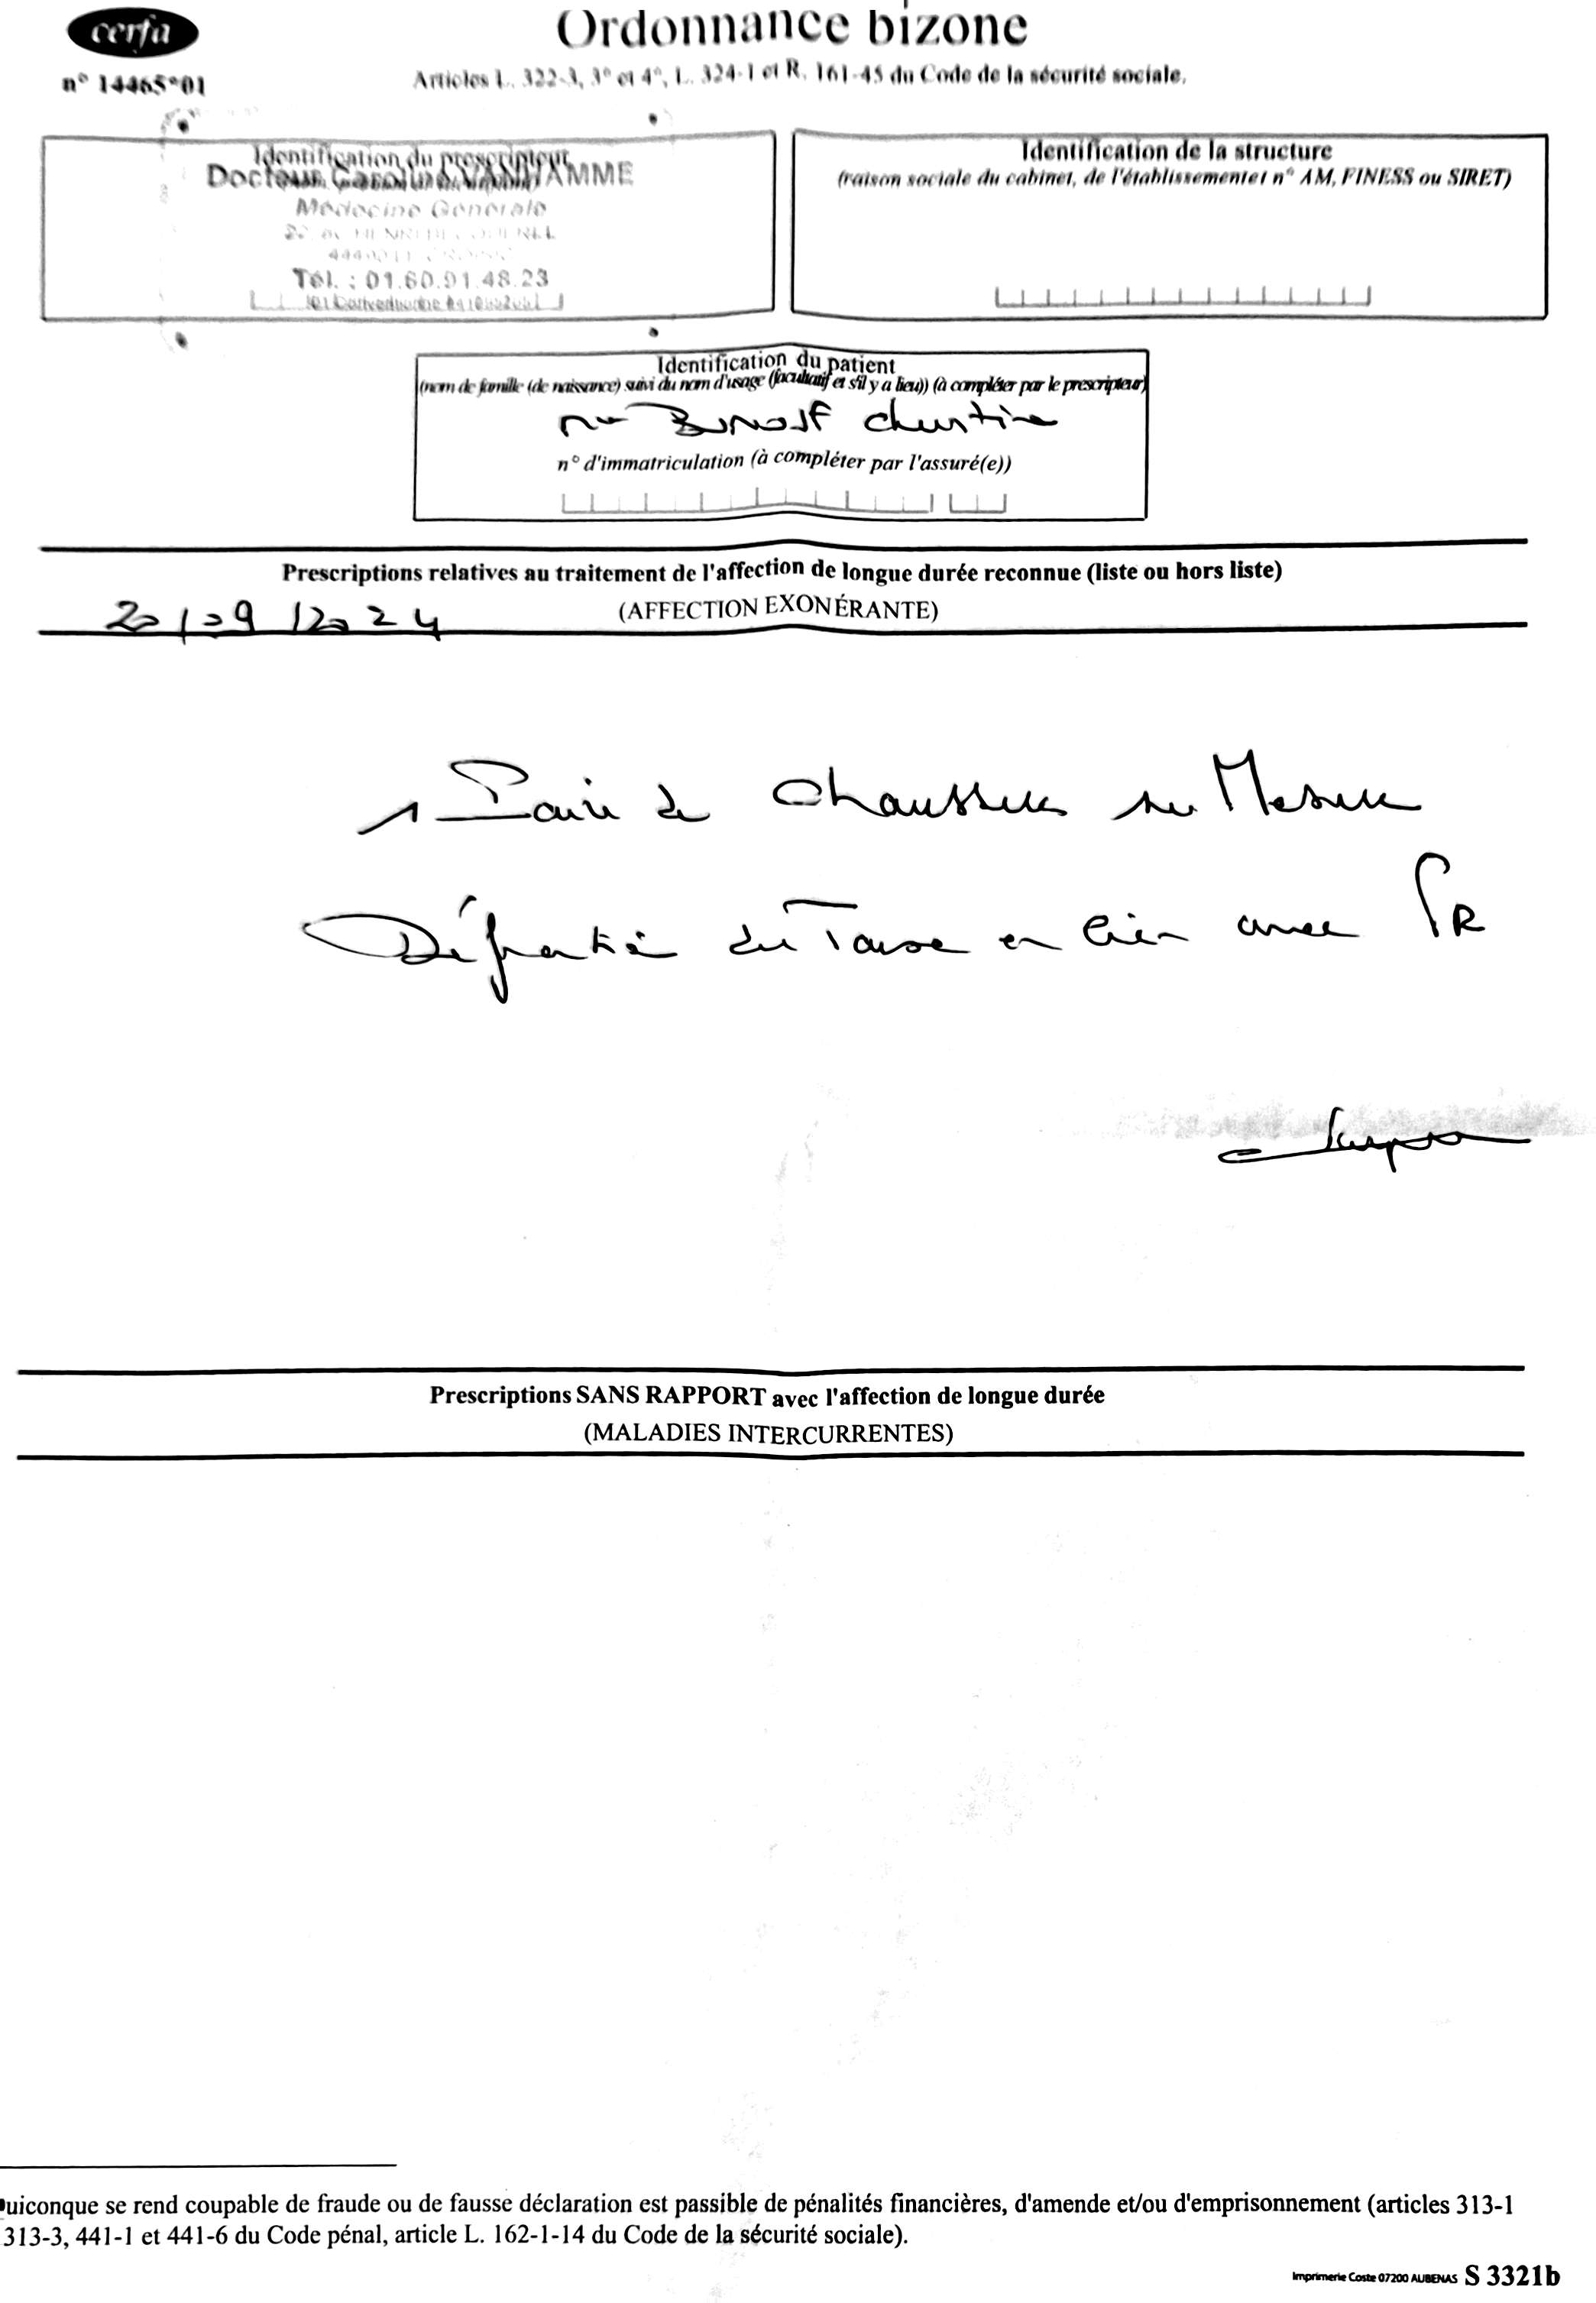 cerfa
Ordonnance bizone
n° 14465*01
Articles L. 322-3, 3° et 4°, L. 324-1 et R. 161-45 du Code de la sécurité sociale.
Identification du prescripteur
Docteur Caroline VANHAMME
Médecine Générale
Tél. : 01.60.91.48.23
Identification de la structure
(raison sociale du cabinet, de l'établissementet n° AM, FINESS ou SIRET)
Identification du patient
(nom de famille (de naissance) suivi du nom d'usage (facultatif et s'il y a lieu)) (à compléter par le prescripteur)
n° d'immatriculation (à compléter par l'assuré(e))
Prescriptions relatives au traitement de l'affection de longue durée reconnue (liste ou hors liste)
20/09/2024
(AFFECTION EXONÉRANTE)
1 Paire de Chaussures sur Mesure
du Tarse en lien avec PR
Prescriptions SANS RAPPORT avec l'affection de longue durée
(MALADIES INTERCURRENTES)
uiconque se rend coupable de fraude ou de fausse déclaration est passible de pénalités financières, d'amende et/ou d'emprisonnement (articles 313-1
313-3, 441-1 et 441-6 du Code pénal, article L. 162-1-14 du Code de la sécurité sociale).
Imprimerie Coste 07200 AUBENAS S 3321b